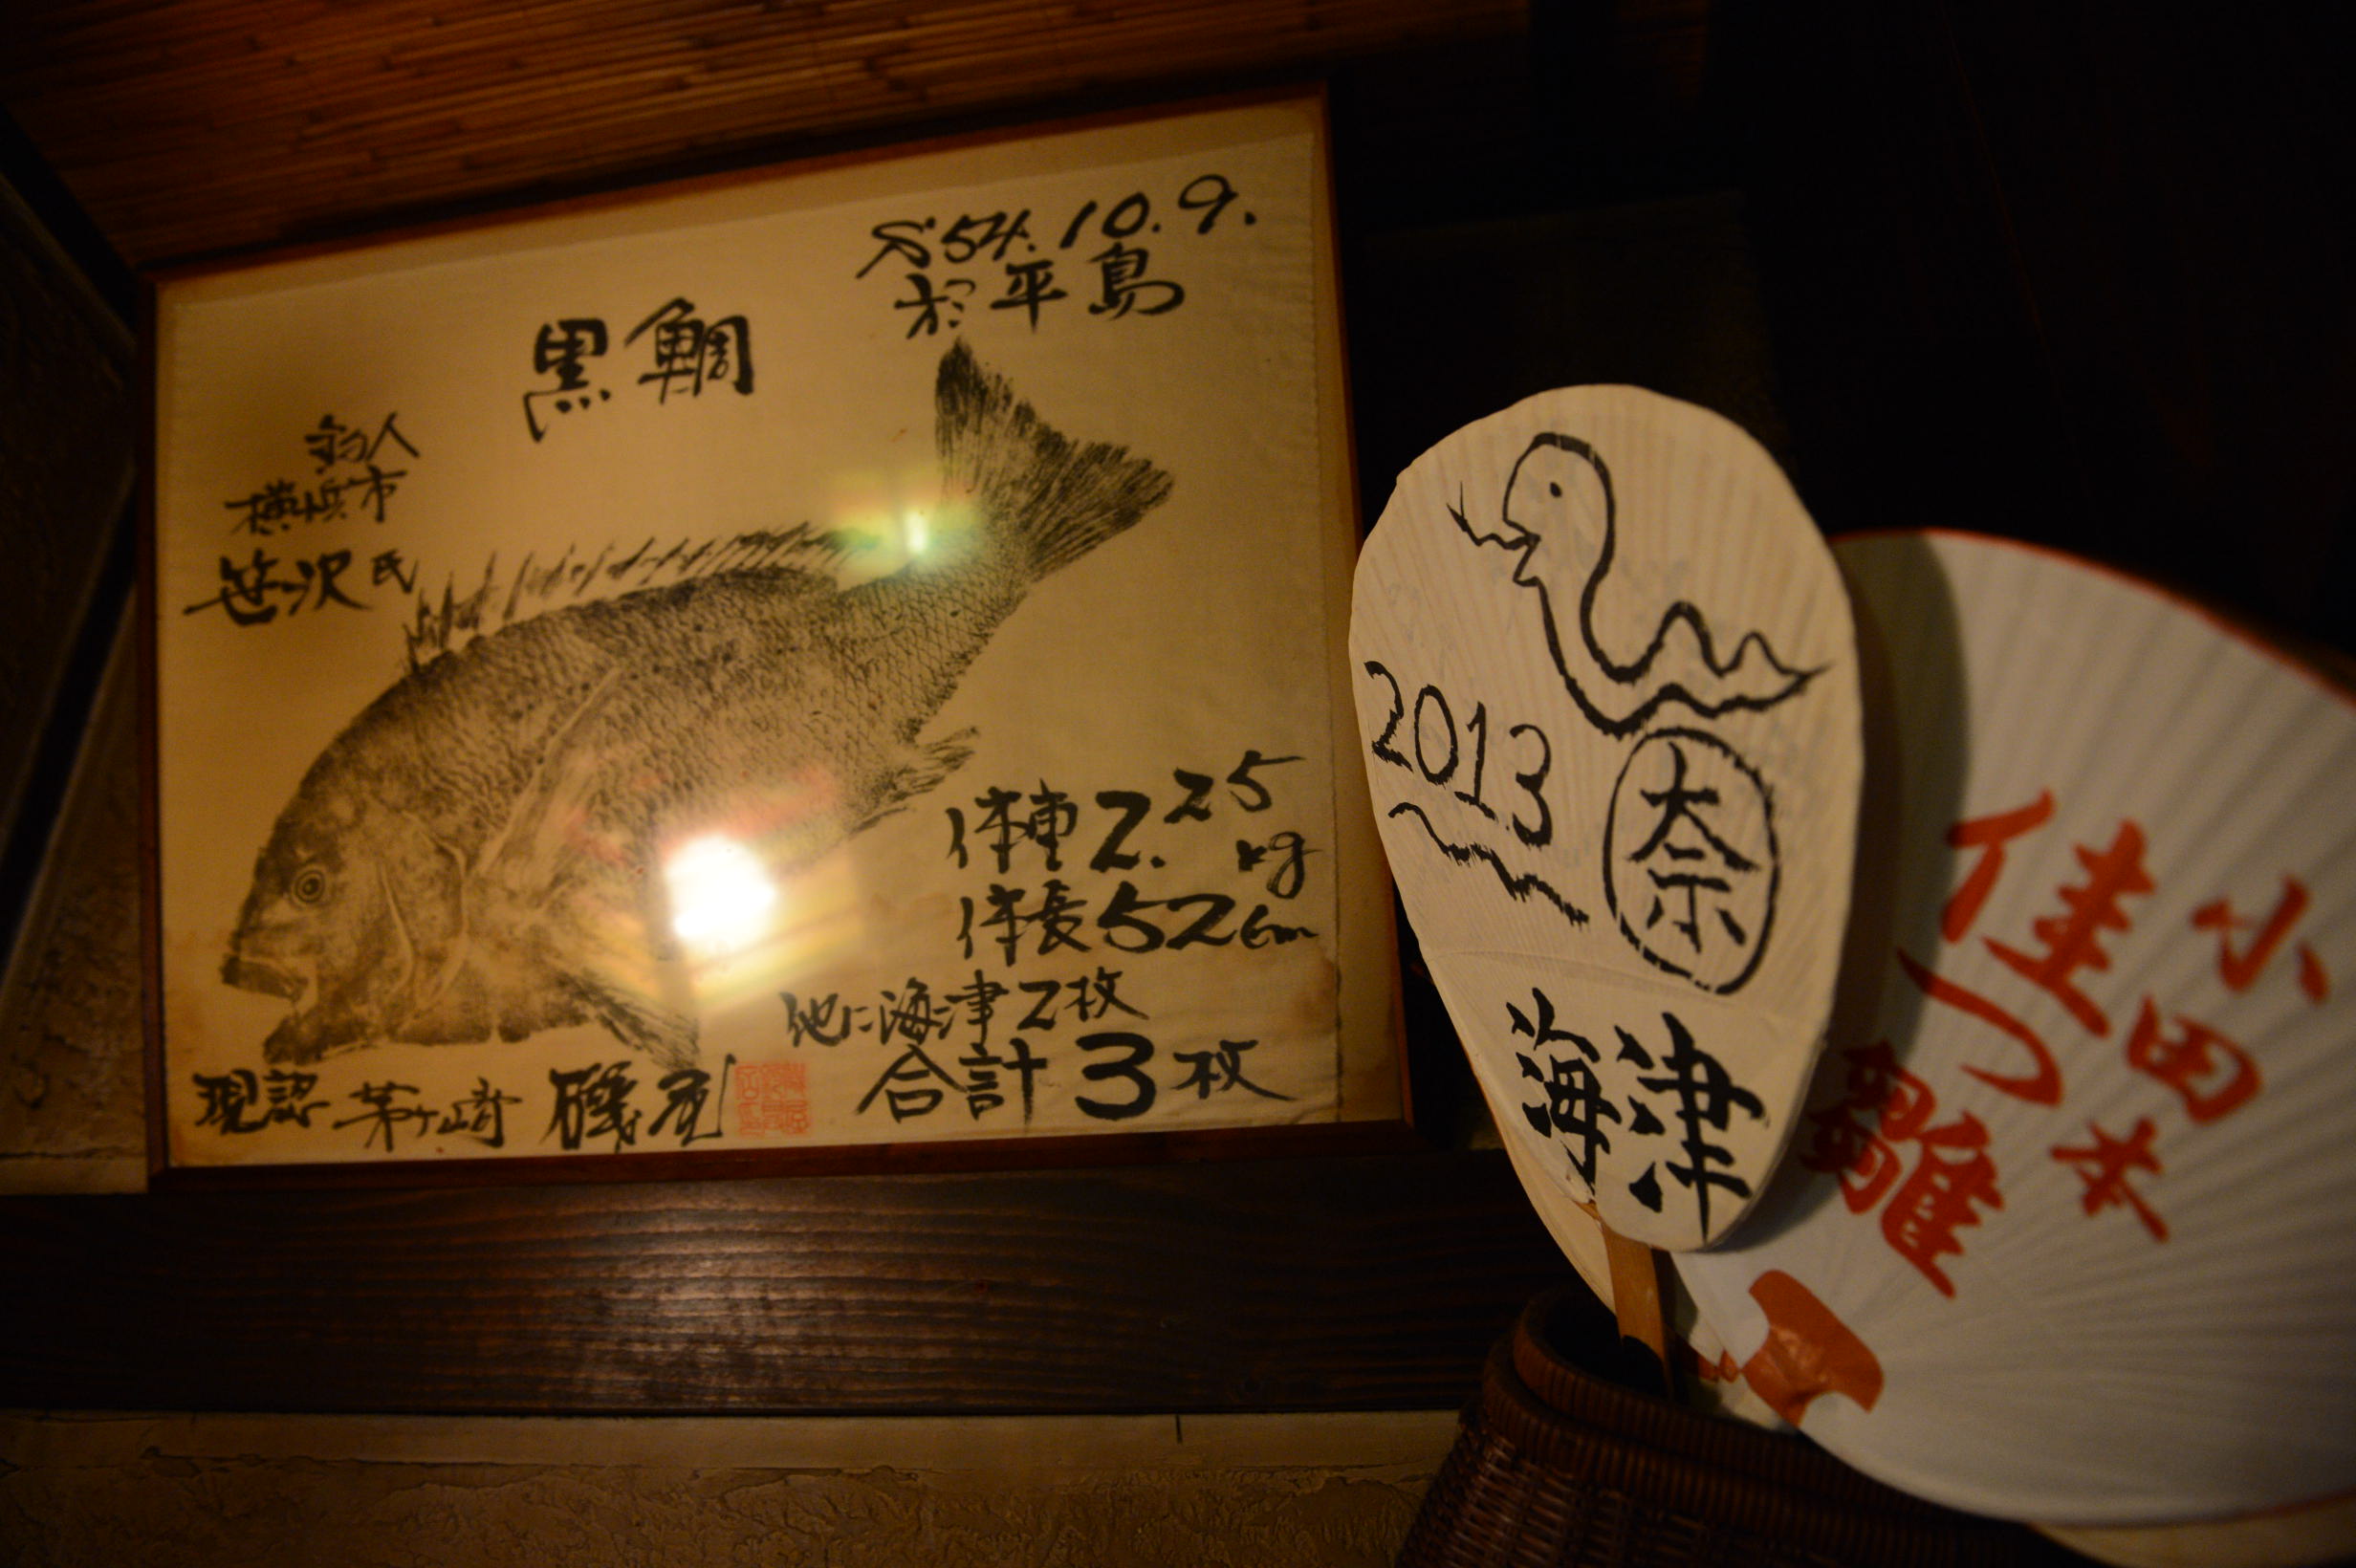 S54.10.9.
於 平島
黒鯛
釣人
横浜市
笹沢氏
体重 2.25kg
体長 52cm
他に海津 2枚
合計 3枚
現認 茅ヶ崎
2013
奈
海津
小田本
佳つ雛